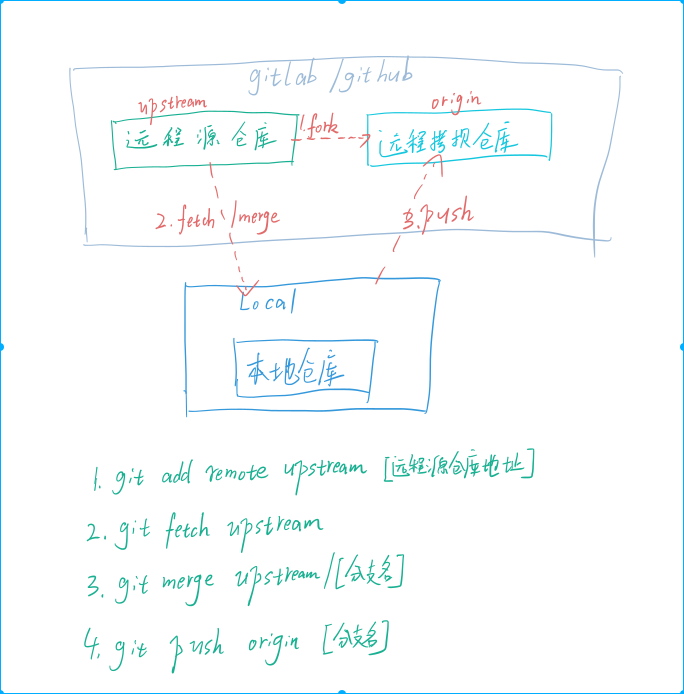 gitlab /github
upstream
origin
远程源仓库
1.fork
远程拷贝仓库
2.fetch /merge
3.push
Local
本地仓库
1. git add remote upstream [远程源仓库地址]
2. git fetch upstream
3. git merge upstream/[分支名]
4. git push origin [分支名]